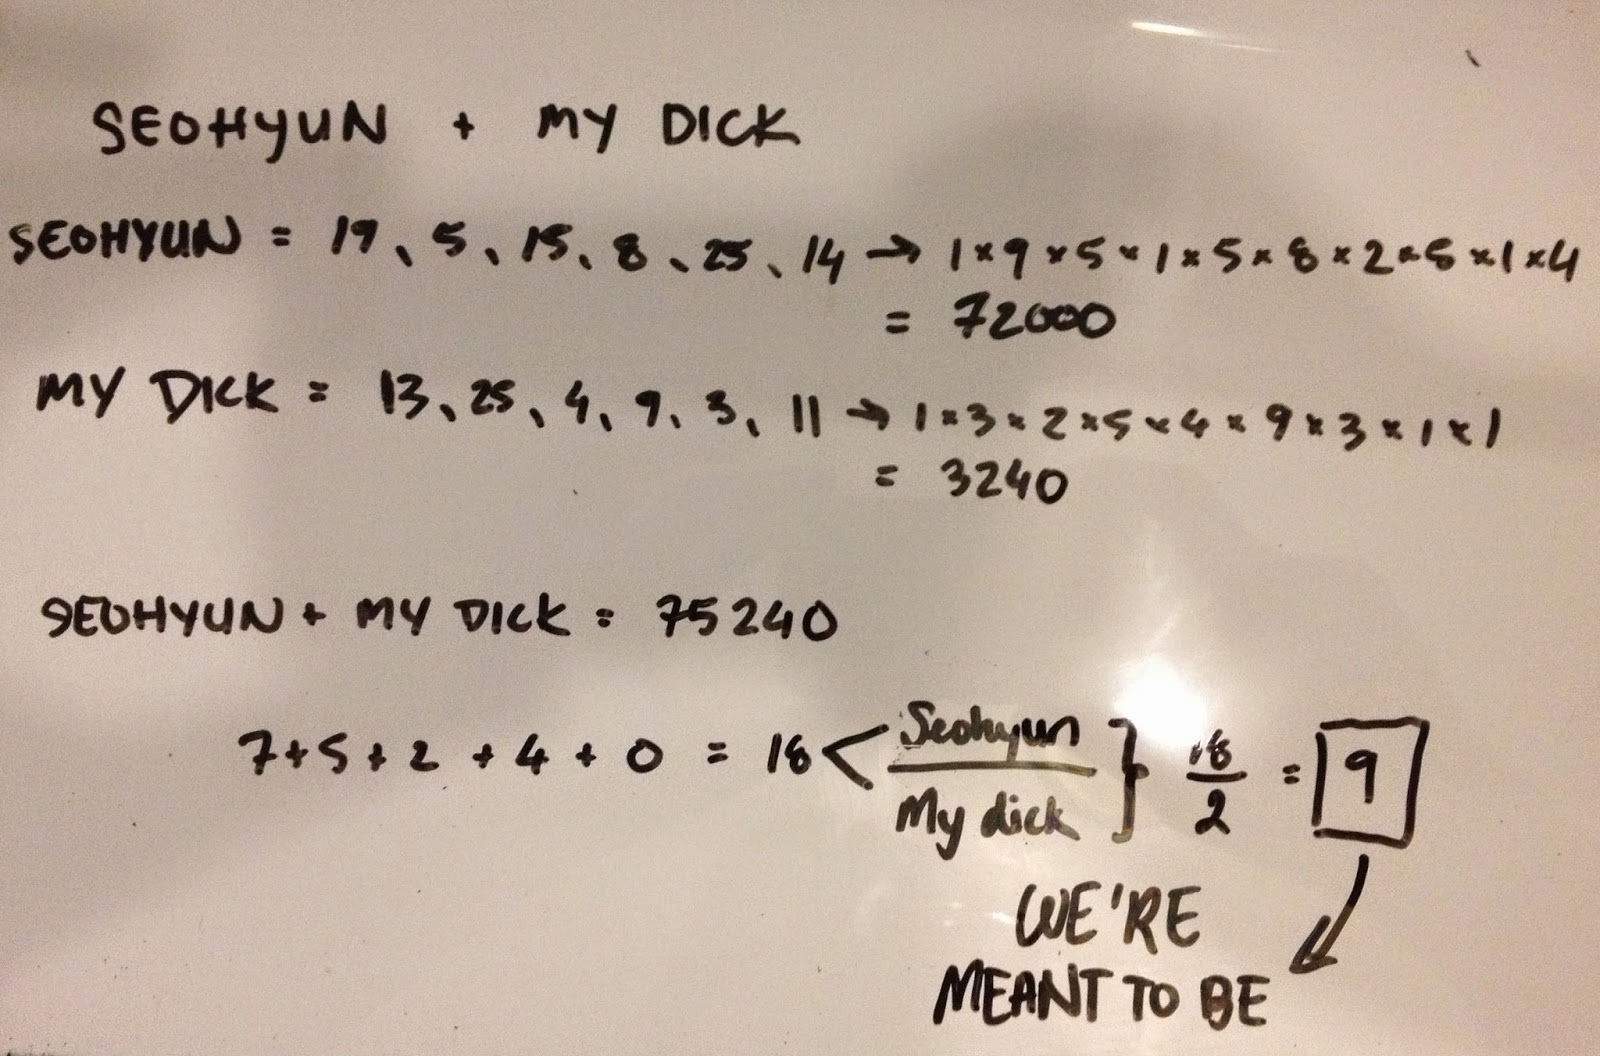 SEOHYUN + MY DICK
SEOHYUN = 19, 5, 15, 8, 25, 14 → 1×9×5×1×5×8×2×5×1×4
= 72000
MY DICK = 13, 25, 4, 9, 3, 11 → 1×3×2×5×4×9×3×1×1
= 3240
SEOHYUN + MY DICK = 75240
7+5+2+4+0 = 18 < Seohyun / My dick } 18/2 = 9
WE'RE
MEANT TO BE